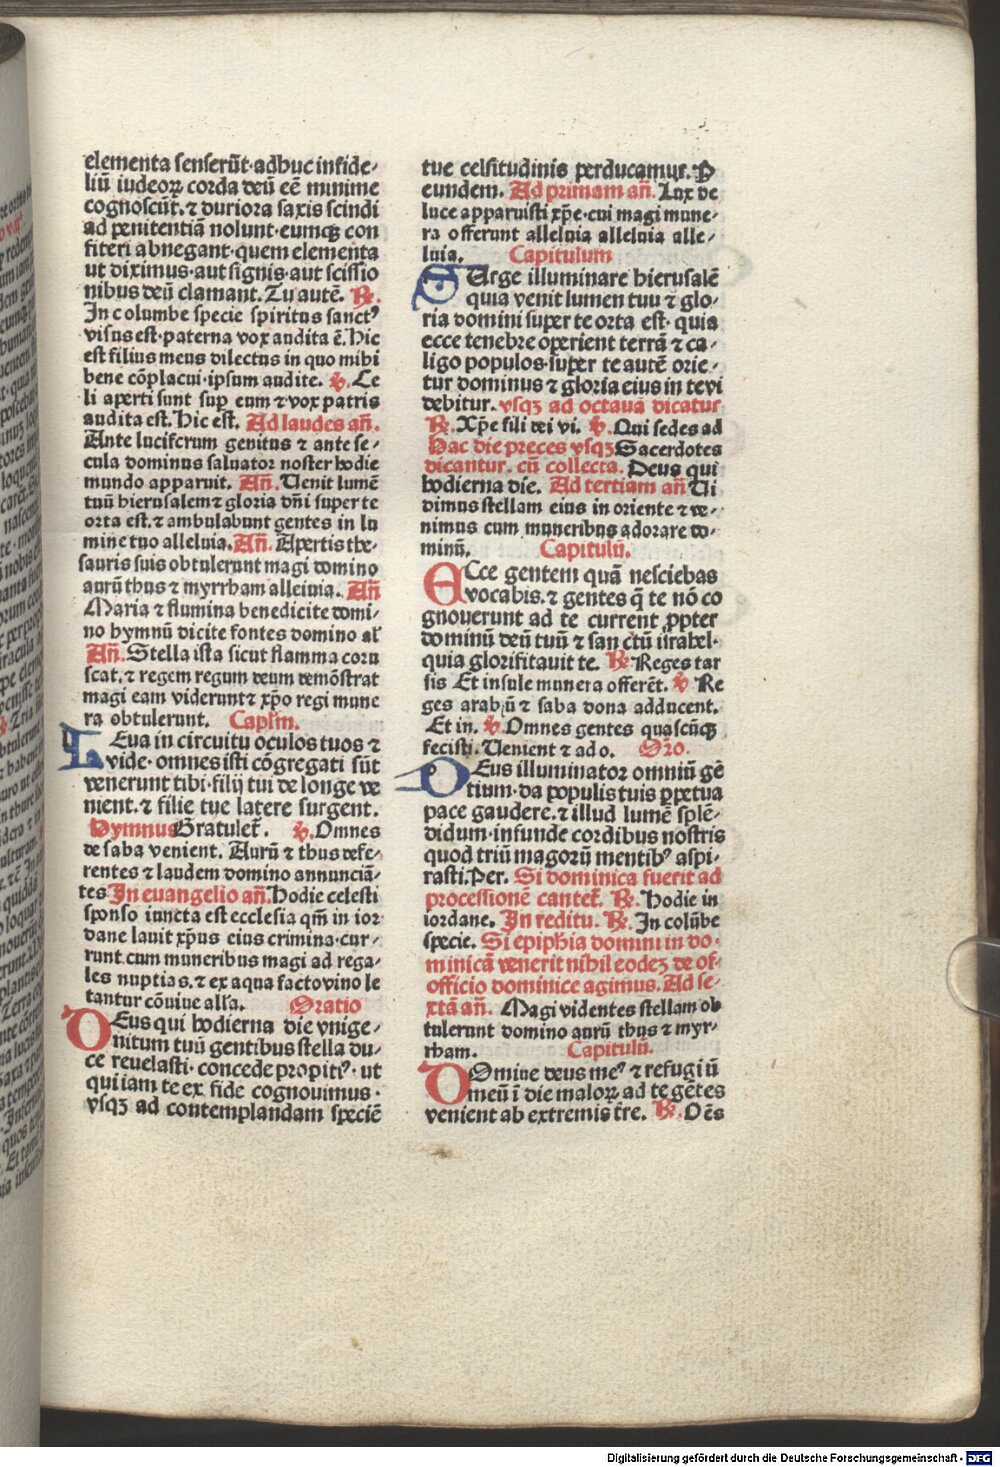 elementa senserūt·adhuc infide-
liū iudeoꝝ corda deū eē minime
cognoscūt.⁊ duriora saxis scindi
ad penitentiā nolunt·eumqꝫ con
fiteri abnegant·quem elementa
ut diximus·aut signis·aut scissio
nibus deū clamant. Tu autē. ℟.
In columbe specie spiritus sanctꝰ
visus est·paterna vox audita ē. Hic
est filius meus dilectus in quo mihi
bene cōplacui·ipsum audite. ℣. Ce
li aperti sunt sup eum ⁊ vox patris
audita est. Hic est. Ad laudes añ.
Ante luciferum genitus ⁊ ante se-
cula dominus saluator noster hodie
mundo apparuit. Añ. Uenit lumē
tuū hierusalem ⁊ gloria dñi super te
orta est.⁊ ambulabunt gentes in lu
mine tuo alleluia. Añ. Apertis the-
sauris suis obtulerunt magi domino
aurū thus ⁊ myrrham alleluia. Añ
Maria ⁊ flumina benedicite domi-
no hymnū dicite fontes domino al̄
Añ. Stella ista sicut flamma coru
scat.⁊ regem regum deum demōstrat
magi eam viderunt ⁊ xp̄o regi mune
ra obtulerunt. Capl̄m.
LEua in circuitu oculos tuos ⁊
vide·omnes isti cōgregati sūt
venerunt tibi·filij tui de longe ve
nient.⁊ filie tue latere surgent.
Hymnus Gratulet̄. ℣. Omnes
de saba venient. Aurū ⁊ thus defe-
rentes ⁊ laudem domino annunciā-
tes In euangelio añ. Hodie celesti
sponso iuncta est ecclesia qm̄ in ior
dane lauit xp̄us eius crimina·cur-
runt cum muneribus magi ad rega-
les nuptias.⁊ ex aqua facto vino le
tantur cōuiue alla. Oratio
DEus qui hodierna die vnige-
nitum tuū gentibus stella du-
ce reuelasti·concede propitiꝰ·ut
qui iam te ex fide cognouimus·
vsqꝫ ad contemplandam speciē
tue celsitudinis perducamur. P
eundem. Ad primam añ. Lux de
luce apparuisti xp̄e·cui magi mune-
ra offerunt alleluia alleluia alle-
luia. Capitulum
SUrge illuminare hierusalē
quia venit lumen tuū ⁊ glo-
ria domini super te orta est·quia
ecce tenebre operient terrā ⁊ ca-
ligo populos·super te autē orie-
tur dominus ⁊ gloria eius in te vi
debitur. vsqꝫ ad octauā dicatur
℟. Xp̄e fili dei vi. ℣. Qui sedes ad
Hac die preces vsqꝫ Sacerdotes
dicantur. cū collecta. Deus qui
hodierna die. Ad tertiam añ Ui
dimus stellam eius in oriente ⁊ ve-
nimus cum muneribus adorare do-
minū. Capitulū.
ECce gentem quā nesciebas
vocabis.⁊ gentes q̄ te nō co
gnouerunt ad te current ꝓpter
dominū deū tuū ⁊ sanctū israhel·
quia glorifitauit te. ℟. Reges tar
sis Et insule munera offerēt. ℣ Re
ges arabū ⁊ saba dona adducent.
Et in. ℣. Omnes gentes quascūqꝫ
fecisti. Uenient ⁊ ado. Oro.
DEus illuminator omniū gē
tium·da populis tuis ꝑpetua
pace gaudere.⁊ illud lumē splē-
didum·infunde cordibus nostris
quod triū magorū mentibꝰ aspi-
rasti. Per. Si dominica fuerit ad
processionē cantet̄. ℟. Hodie in
iordane. In reditu. ℟. In colūbe
specie. Si epiphīa domini in do-
minicā venerit nihil eodeꝫ de of-
officio dominice agimus. Ad se-
xtā añ. Magi videntes stellam ob
tulerunt domino aurū thus ⁊ myr-
rham. Capitulū.
DOmine deus meꝰ ⁊ refugiū
meū ī die maloꝝ ad te gētes
venient ab extremis tr̄e. ℟. Oēs
Digitalisierung gefördert durch die Deutsche Forschungsgemeinschaft - DFG